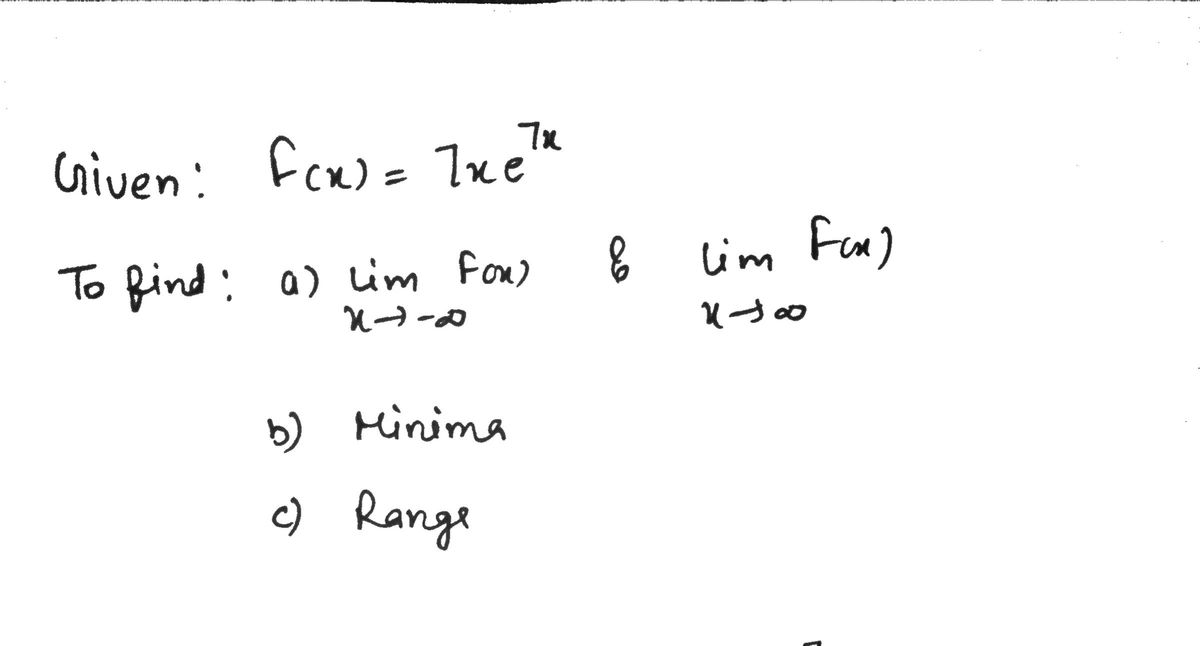 Given: f(x) = 7xe^7x
To find: a) lim f(x) & lim f(x)
x→-∞ x→∞
b) Minima
c) Range